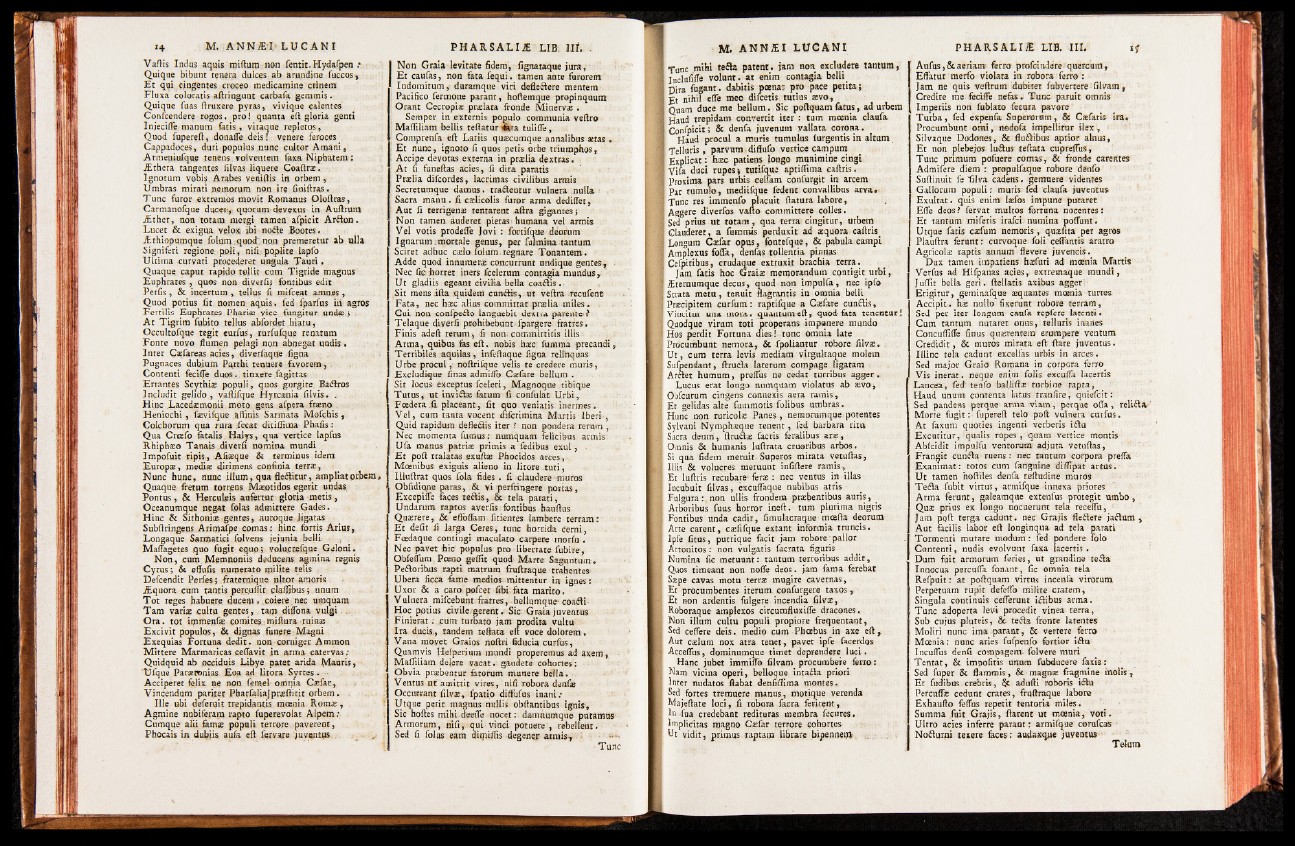 14 M. ANNÆI LUCANI
Vaſtis Indus aquis miſtum non ſentit Hydaſpen:
Quique bibunt tenera dulces ab arundine ſuccos,
Et qui cingentes croceo medicamine crinem
Fluxa coloratis aſtringunt carbaſa gemmis.
Quique ſuas ſtruxere pyras, vivique calentes
Conſcendere rogos. pro! quanta eſt gloria genti
Injeciſſe manum fatis, vitaque repletos,
Quod ſupereſt, donaſſe deis! venere feroces
Cappadoces, duri populus nunc cultor Amani,
Armeniuſque tenens volventem ſaxa Niphatem:
Æthera tangentes ſilvas liquere Coaſtræ.
Ignotum vobis Arabes veniſtis in orbem,
Umbras mirati nemorum non ire ſiniſtras.
Tunc furor extremos movit Romanus Oloſtras,
Carmanoſque duces, quorum devexus in Auſtrum
Æther, non totam mergi tamen aſpicit Arcton.
Lucet & exigua velox ibi nocte Bootes.
Æthiopumque ſolum quod non premeretur ab ulla
Signiferi regione poli, niſi poplite lapſo
Ultima curvati procederet ungula Tauri.
Quaque caput rapido tollit cum Tigride magnus
Euphrates, quos non diverſis fontibus edit
Perſis, & incertum, tellus ſi miſceat amnes,
Quod potius ſit nomen aquis. ſed ſparſus in agros
Fertilis Euphrates Phariæ vice fungitur undæ;
At Tigrim ſubito tellus abſorbet hiatu,
Occultoſque tegit curſus, rurſuſque renatum
Fonte novo flumen pelagi non abnegat undis.
Inter Cæſareas acies, diverſaque ſigna
Pugnaces dubium Parthi tenuere favorem,
Contenti feciſſe duos. tinxere ſagittas
Errantes Scythiæ populi, quos gurgite Bactros
Includit gelido, vaſtiſque Hyrcania ſilvis.
Hinc Lacedæmonii moto gens aſpera fræno
Heniochi, ſæviſque affinis Sarmata Moſchis,
Colchorum qua rura ſecat ditiſſima Phaſis:
Qua Crœſo fatalis Halys, qua vertice lapſus
Rhiphæo Tanais diverſi nomina mundi
Impoſuit ripis, Aſiæque & terminus idem
Europæ, mediæ dirimens confinia terræ,
Nunc hunc, nunc illum, qua flectitur, ampliat orbem,
Quaque fretum torrens Mæotidos egerit undas
Pontus, & Herculeis aufertur gloria metis,
Oceanumque negat ſolas admittere Gades.
Hinc & Sithoniæ gentes, auroque ligatas
Subſtringens Arimaſpe comas: hinc fortis Arius,
Longaque Sarmatici ſolvens jejunia belli
Maſſagetes quo fugit equo; volucreſque Geloni.
Non, cum Memnoniis deducens agmina regnis
Cyrus; & effuſis numerato milite telis
Deſcendit Perſes; fraternique ultor amoris
Æquora cum tantis percuſſit claſſibus; unum
Tot reges habuere ducem. coiere nec umquam
Tam variæ cultu gentes, tam diſſona vulgi
Ora. tot immenſæ comites miſſura ruinæ
Excivit populos, & dignas funere Magni
Exequias Fortuna dedit. non corniger Ammon
Mittere Marmaricas ceſſavit in arma catervas:
Quidquid ab occiduis Libye patet arida Mauris,
Uſque Parætonias Eoa ad litora Syrtes.
Acciperet felix ne non ſemel omnia Cæſar,
Vincendum pariter Pharſalia præſtitit orbem.
Ille ubi deſeruit trepidantis mœnia Romæ,
Agmine nubiferam rapto ſuperevolat Alpem:
Cumque alii famæ populi terrore paverent,
Phocais in dubiis auſa eſt ſervare juventus
PHARSALIÆ LIB. III.
Non Graia levitate fidem, ſignataque jura,
Et cauſas, non fata ſequi. tamen ante furorem
Indomitum, duramque viri deflectere mentem
Pacifico ſermone parant, hoſtemque propinquum
Orant Cecropiæ prælata fronde Minervæ.
Semper in externis populo communia veſtro
Maſſiliam bellis teſtatur fata tuliſſe,
Comprenſa eſt Latiis quæcumque annalibus ætas.
Et nunc, ignoto ſi quos petis orbe triumphos,
Accipe devotas externa in prælia dextras.
At ſi funeſtas acies, ſi dira paratis
Prælia diſcordes, lacrimas civilibus armis
Secretumque damus. tractentur vulnera nulla
Sacra manu. ſi cælicolis furor arma dediſſet,
Aut ſi terrigenæ tentarent aſtra gigantes;
Non tamen auderet pietas humana vel armis
Vel votis prodeſſe Jovi: ſortiſque deorum
Ignarum mortale genus, per fulmina tantum
Sciret adhuc cælo ſolum regnare Tonantem.
Adde quod innumeræ concurrunt undique gentes,
Nec ſic horret iners ſcelerum contagia mundus,
Ut gladiis egeant civilia bella coactis.
Sit mens iſta quidem cunctis, ut veſtra recuſent
Fata, nec hæc alius committat prælia miles.
Cui non conſpecto languebit dextra parente?
Telaque diverſi prohibebunt ſpargere fratres.
Finis adeſt rerum, ſi non committitis illis
Arma, quibus fas eſt. nobis hæc ſumma precandi,
Terribiles aquilas, infeſtaque ſigna relinquas
Urbe procul, noſtriſque velis te credere muris,
Excludique ſinas admiſſo Cæſare bellum.
Sit locus exceptus ſceleri, Magnoque tibique
Tutus, ut invictæ fatum ſi conſulat Urbi,
Fœdera ſi placeant, ſit quo veniatis inermes.
Vel, cum tanta vocent diſcrimina Martis Iberi,
Quid rapidum deflectis iter? non pondera rerum,
Nec momenta ſumus: numquam felicibus armis
Uſa manus patriæ primis a ſedibus exul,
Et poſt tralatas exuſtæ Phocidos arces,
Mœnibus exiguis alieno in litore tuti,
Illuſtrat quos ſola fides. ſi claudere muros
Obſidione paras, & vi perfringere portas,
Excepiſſe faces tectis, & tela parati,
Undarum raptos averſis fontibus hauſtus
Quærere, & effoſſam ſitientes lambere terram:
Et deſit ſi larga Ceres, tunc horrida cerni,
Fœdaque contingi maculato carpere morſu.
Nec pavet hic populus pro libertate ſubire,
Obſeſſum Pœno geſſit quod Marte Saguntum.
Pectoribus rapti matrum fruſtraque trahentes
Ubera ſicca fame medios mittentur in ignes:
Uxor & a caro poſcet ſibi fata marito.
Vulnera miſcebunt fratres, bellumque coacti
Hoc potius civile gerent. Sic Graia juventus
Finierat: cum turbato jam prodita vultu
Ira ducis, tandem teſtata eſt voce dolorem.
Vana movet Graios noſtri fiducia curſus,
Quamvis Heſperium mundi properemus ad axem,
Maſſiliam delere vacat. gaudete cohortes:
Obvia præbentur fatorum munere bella.
Ventus ut amittit vires, niſi robora denſæ
Occurrant ſilvæ, ſpatio diffuſus inani:
Utque perit magnus nullis obſtantibus ignis,
Sic hoſtes mihi deeſſe nocet: damnumque putamus
Armorum, niſi, qui vinci potuere, rebellent.
Sed ſi ſolus eam dimiſſis degener armis,
Tunc
M. ANNÆI LUCANI
Tunc mihi tecta patent. jam non excludere tantum,
Incluſiſſe volunt. at enim contagia belli
Dira fugant. dabitis pœnas pro pace petita;
Et nihil eſſe meo diſcetis tutius ævo,
Quam duce me bellum. Sic poſtquam fatus, ad urbem
Haud trepidam convertit iter: tum mœnia clauſa
Conſpicit; & denſa juvenum vallata corona.
Haud procul a muris tumulus ſurgentis in altum
Telluris, parvum diffuſo vertice campum
Explicat: hæc patiens longo munimine cingi
Viſa duci rupes; tutiſque aptiſſima caſtris.
Proxima pars urbis celſam conſurgit in arcem
Par tumulo, mediiſque ſedent convallibus arva.
Tunc res immenſo placuit ſtatura labore,
Aggere diverſas vaſto committere colles.
Sed prius ut totam, qua terra cingitur, urbem
Clauderet, a ſummis perduxit ad æquora caſtris
Longum Cæſar opus, fonteſque, & pabula campi
Amplexus foſſa, denſas tollentia pinnas
Ceſpitibus, crudaque extruxit brachia terra.
Jam ſatis hoc Graiæ memorandum contigit urbi,
Æternumque decus, quod non impulſa, nec ipſo
Strata metu, tenuit flagrantis in omnia belli
Præcipitem curſum: raptiſque a Cæſare cunctis,
Vincitur una mora. quantum eſt, quod fata tenentur!
Quodque virum toti properans imponere mundo
Hos perdit Fortuna dies! tunc omnia late
Procumbunt nemora, & ſpoliantur robore ſilvæ.
Ut, cum terra levis mediam virgultaque molem
Suſpendant, ſtructa laterum compage ligatam
Arctet humum, preſſus ne cedat turribus agger.
Lucus erat longo numquam violatus ab ævo,
Obſcurum cingens connexis aera ramis,
Et gelidas alte ſummotis ſolibus umbras.
Hunc non ruricolæ Panes, nemorumque potentes
Sylvani Nymphæque tenent, ſed barbara ritu
Sacra deum, ſtructæ ſacris feralibus aræ,
Omnis & humanis luſtrata cruoribus arbos.
Si qua fidem meruit Superos mirata vetuſtas,
Illis & volucres metuunt inſiſtere ramis,
Et luſtris recubare feræ: nec ventus in illas
Incubuit ſilvas, excuſſaque nubibus atris
Fulgura: non ullis frondem præbentibus auris,
Arboribus ſuus horror ineſt. tum plurima nigris
Fontibus unda cadit, ſimulacraque mœſta deorum
Arte carent, cæſiſque extant informia truncis.
Ipſe ſitus, putrique facit jam robore pallor
Attonitos: non vulgatis ſacrata figuris
Numina ſic metuunt: tantum terroribus addit,
Quos timeant non noſſe deos. jam fama ferebat
Sæpe cavas motu terræ mugire cavernas,
Et procumbentes iterum conſurgere taxos,
Et non ardentis fulgere incendia ſilvæ,
Roboraque amplexos circumfluxiſſe dracones.
Non illum cultu populi propiore frequentant,
Sed ceſſere deis. medio cum Phœbus in axe eſt,
Aut cælum nox atra tenet, pavet ipſe ſacerdos
Acceſſus, dominumque timet deprendere luci.
Hanc jubet immiſſo ſilvam procumbere ferro:
Nam vicina operi, belloque intacta priori
Inter nudatos ſtabat denſiſſima montes.
Sed fortes tremuere manus, motique verenda
Majeſtate loci, ſi robora ſacra ferirent,
In ſua credebant redituras membra ſecures.
Implicitas magno Cæſar terrore cohortes
Ut vidit, primus raptam librare bipennem
PHARSALIÆ LIB. III. 15
Auſus, & aeriam ferro proſcindere quercum,
Effatur merſo violata in robora ferro:
Jam ne quis veſtrum dubitet ſubvertere ſilvam,
Credite me feciſſe nefas. Tunc paruit omnis
Imperiis non ſublato ſecura pavore
Turba, ſed expenſa Superorum, & Cæſaris ira.
Procumbunt orni, nodoſa impellitur ilex,
Silvaque Dodones, & fluctibus aptior alnus,
Et non plebejos luctus teſtata cupreſſus,
Tunc primum poſuere comas, & fronde carentes
Admiſere diem: propulſaque robore denſo
Suſtinuit ſe ſilva cadens. gemuere videntes
Gallorum populi: muris ſed clauſa juventus
Exultat. quis enim læſos impune putaret
Eſſe deos? ſervat multos fortuna nocentes:
Et tantum miſeris iraſci numina poſſunt.
Utque ſatis cæſum nemoris, quæſita per agros
Plauſtra ferunt: curvoque ſoli ceſſantis aratro
Agricolæ raptis annum flevere juvencis.
Dux tamen impatiens hæſuri ad mœnia Martis
Verſus ad Hiſpanas acies, extremaque mundi,
Juſſit bella geri. ſtellatis axibus agger
Erigitur, geminaſque æquantes mœnia turres
Accipit. hæ nullo fixerunt robore terram,
Sed per iter longum cauſa repſere latenti.
Cum tantum nutaret onus, telluris inanes
Concuſſiſſe ſinus quærentem erumpere ventum
Credidit, & muros mirata eſt ſtare juventus.
Illinc tela cadunt excelſas urbis in arces.
Sed major Graio Romana in corpora ferro
Vis inerat. neque enim ſolis excuſſa lacertis
Lancea, ſed tenſo balliſtæ turbine rapta,
Haud unum contenta latus tranſire, quieſcit:
Sed pandens perque arma viam, perque oſſa, relicta
Morte fugit: ſupereſt telo poſt vulnera curſus.
At ſaxum quoties ingenti verberis ictu
Excutitur, qualis rupes, quam vertice montis
Abſcidit impulſu ventorum adjuta vetuſtas,
Frangit cuncta ruens: nec tantum corpora preſſa
Exanimat: totos cum ſanguine diſſipat artus.
Ut tamen hoſtiles denſa teſtudine muros
Tecta ſubit virtus, armiſque innexa priores
Arma ferunt, galeamque extenſus protegit umbo,
Quæ prius ex longo nocuerunt tela receſſu,
Jam poſt terga cadunt. nec Grajis flectere jactum,
Aut facilis labor eſt longinqua ad tela parati
Tormenti mutare modum: ſed pondere ſolo
Contenti, nudis evolvunt ſaxa lacertis.
Dum fuit armorum ſeries, ut grandine tecta
Innocua percuſſa ſonant, ſic omnia tela
Reſpuit: at poſtquam virtus incenſa virorum
Perpetuam rupit defeſſo milite cratem,
Singula continuis ceſſerunt ictibus arma.
Tunc adoperta levi procedit vinea terra,
Sub cujus pluteis, & tecta fronte latentes
Moliri nunc ima parant, & vertere ferro
Mœnia: nunc aries ſuſpenſo fortior ictu
Incuſſus denſi compagem ſolvere muri
Tentat, & impoſitis unum ſubducere ſaxis:
Sed ſuper & flammis, & magnæ fragmine molis,
Et ſudibus crebris, & aduſti roboris ictu
Percuſſæ cedunt crates, fruſtraque labore
Exhauſto feſſus repetit tentoria miles.
Summa fuit Grajis, ſtarent ut mœnia, voti.
Ultro acies inferre parant: armiſque coruſcas
Nocturni texere faces: audaxque juventus
Telum